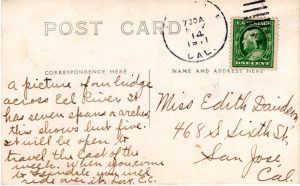 POST CARD
7 30 A
14
1911
CAL.
U.S. POSTAGE
ONE CENT
CORRESPONDENCE HERE
NAME AND ADDRESS HERE
a picture of our bridge
across Eel River. It
has seven spans or arches,
this shows but five.
It will be open to
travel the last of the
week. When you come
to Ferndale you will
ride over it.
Miss Edith Davidson
468 S Sixth St.
San Jose
Cal.